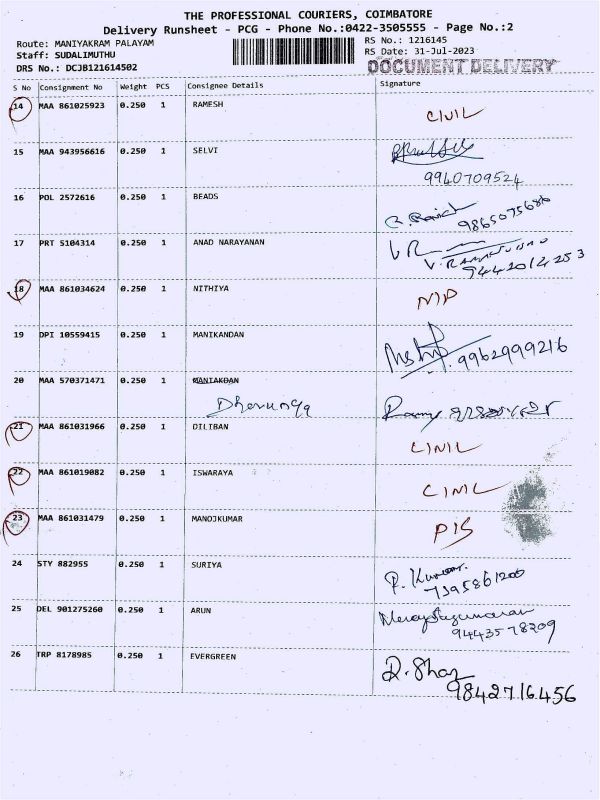 THE PROFESSIONAL COURIERS, COIMBATORE
Delivery Runsheet - PCG - Phone No.:0422-3505555 - Page No.:2
Route: MANIYAKRAM PALAYAM
RS No.: 1216145
Staff: SUDALIMUTHU
RS Date: 31-Jul-2023
DRS No.: DCJB121614502
DOCUMENT DELIVERY
S No Consignment No Weight PCS Consignee Details Signature
14 MAA 861025923 0.250 1 RAMESH
15 MAA 943956616 0.250 1 SELVI
9940709524
16 POL 2572616 0.250 1 BEADS
9865075686
17 PRT 5104314 0.250 1 ANAD NARAYANAN
9442014253
18 MAA 861034624 0.250 1 NITHIYA
19 DPI 10559415 0.250 1 MANIKANDAN
9962999216
20 MAA 570371471 0.250 1 MANIAKDAN
21 MAA 861031966 0.250 1 DILIBAN
22 MAA 861019082 0.250 1 ISWARAYA
23 MAA 861031479 0.250 1 MANOJKUMAR
24 STY 882955 0.250 1 SURIYA
P. Kumar
7395861200
25 DEL 901275260 0.250 1 ARUN
9443578209
26 TRP 8178985 0.250 1 EVERGREEN
9842716456